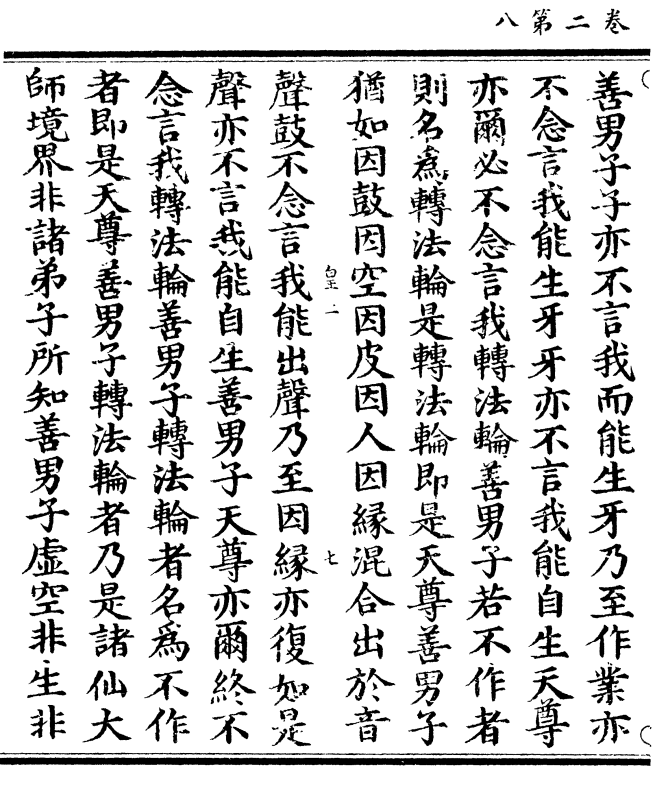 卷二第八
善男子子亦不言我而能生牙乃至作業亦
不念言我能生牙牙亦不言我能自生天尊
亦爾必不念言我轉法輪善男子若不作者
則名為轉法輪是轉法輪即是天尊善男子
猶如因鼓因空因皮因人因緣混合出於音
皇二
七
聲鼓不念言我能出聲乃至因緣亦復如是
聲亦不言我能自生善男子天尊亦爾終不
念言我轉法輪善男子轉法輪者名爲不作
者即是天尊善男子轉法輪者乃是諸仙大
師境界非諸弟子所知善男子虛空非生非